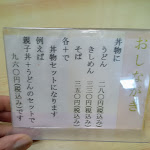 おしながき
丼物に
うどん 二八〇円(税込み)
きしめん 三三〇円(税込み)
そば 三五〇円(税込み)
各+で
丼物セットになります
例えば
親子丼+うどんのセットで
九六〇円(税込み)です